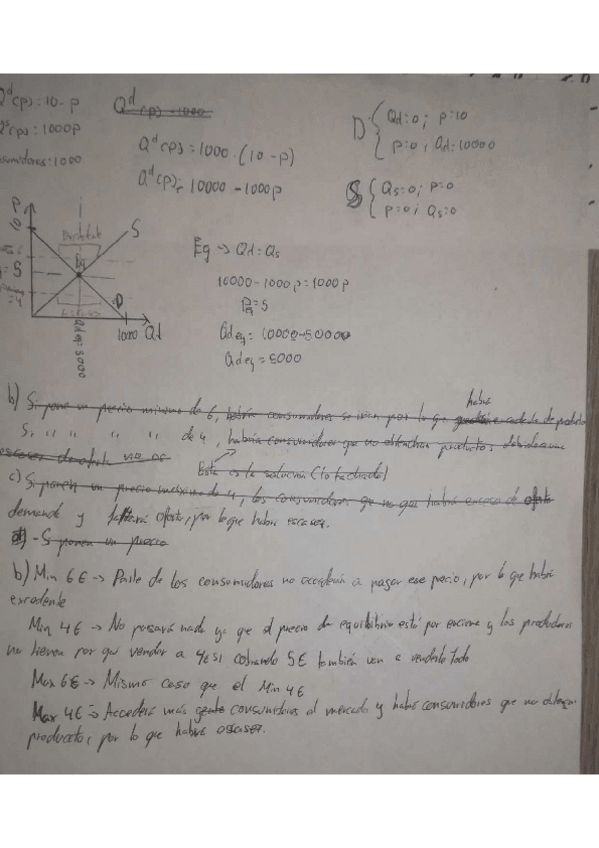 Qd(p) = 10 - p
Qd
(p) = 1000
Qs(p) = 1000p
Consumidores: 1000
Qd(p) = 1000 · (10 - p)
Qd(p) = 10000 - 1000p
D { Qd = 0; p = 10
p = 0; Qd = 10000
S { Qs = 0; p = 0
p = 0; Qs = 0
P
S
Eq
D
1000 Qd
Qdeq = 5000
Eq → Qd = Qs
10000 - 1000p = 1000p
Peq = 5
Qdeq = 10000 - 5000
Qdeq = 5000
b) Si pone un precio mínimo de 6, habría consumidores se irían por lo que habrá de producto
Si " " " " de 4, habría consumidores que no obtendrían producto,
no es
Esta es la solución (lo tachado)
c) Si ponen un precio máximo de 4, los consumidores que no habrá exceso de
demanda y faltará oferta, por lo que habrá escasez.
d) - Si ponen un precio
b) Min 6€ → Parte de los consumidores no accederán a pagar ese precio, por lo que habrá
excedente
Min 4€ → No pasará nada ya que el precio de equilibrio está por encima y los productores
no tienen por qué vender a 4€ si cobrando 5€ también van a venderlo todo
Max 6€ → Mismo caso que el Min 4€
Max 4€ → Accederá más gente consumidores al mercado y habrá consumidores que no obtengan
producto, por lo que habrá escasez.